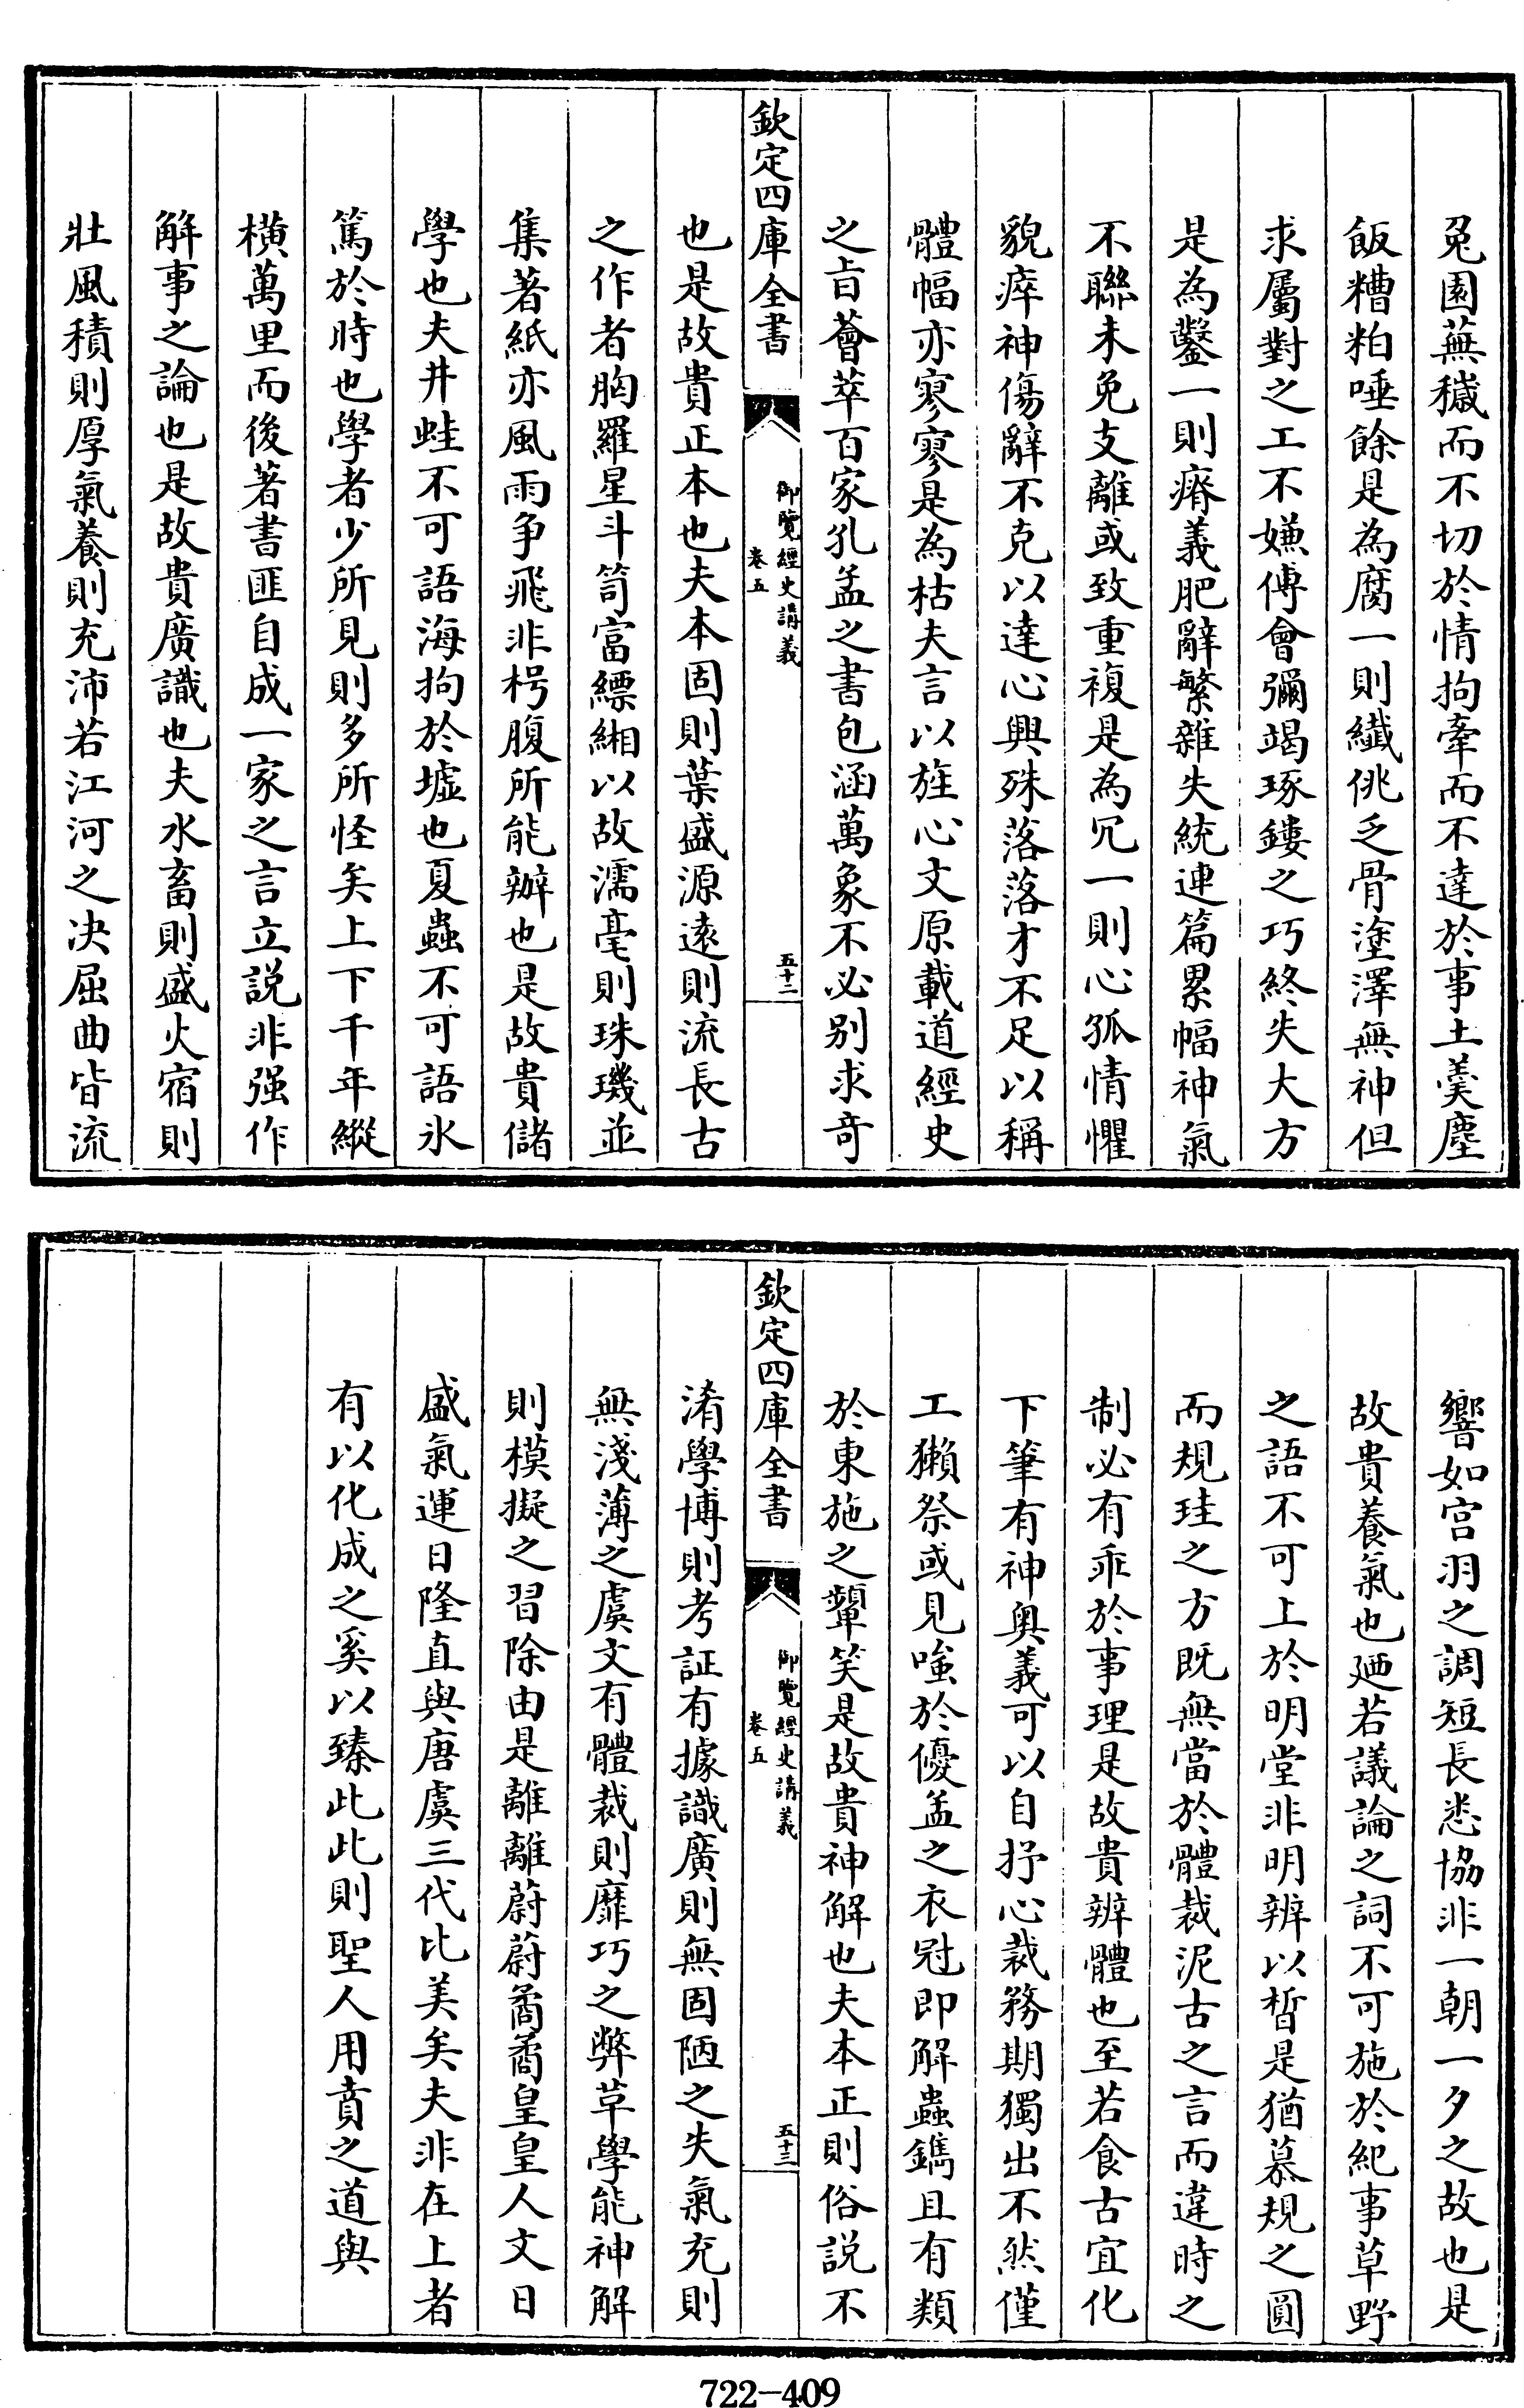 兎園蕪穢而不切於情拘牽而不達於事土羹塵
飯糟粕唾餘是為腐一則纖佻乏骨塗澤無神但
求屬對之工不嫌傅會彌竭琢鏤之巧終失大方
是為鑿一則瘠義肥辭繁雜失統連篇累幅神氣
不聯未免支離或致重複是為冗一則心孤情懼
貌瘁神傷辭不克以達心興殊落落才不足以稱
體幅亦寥寥是為枯夫言以旌心文原載道經史
之旨薈萃百家孔孟之書包涵萬象不必别求奇
欽定四庫全書
御覽經史講義
卷五
五十二
也是故貴正本也夫本固則葉盛源遠則流長古
之作者胸羅星斗笥富縹緗以故濡毫則珠璣並
集著紙亦風雨争飛非枵腹所能辦也是故貴儲
學也夫井蛙不可語海拘於墟也夏蟲不可語氷
篤於時也學者少所見則多所怪矣上下千年縱
横萬里而後著書匪自成一家之言立説非强作
解事之論也是故貴廣識也夫水畜則盛火宿則
壯風積則厚氣養則充沛若江河之决屈曲皆流
響如宫羽之調短長悉協非一朝一夕之故也是
故貴養氣也廼若議論之詞不可施於紀事草野
之語不可上於明堂非明辨以晳是猶慕規之圓
而規珪之方既無當於體裁泥古之言而違時之
制必有乖於事理是故貴辨體也至若食古宜化
下筆有神奥義可以自抒心裁務期獨出不然僅
工獺祭或見嗤於優孟之衣冠即解蟲鐫且有類
於東施之顰笑是故貴神解也夫本正則俗説不
欽定四庫全書
御覽經史講義
卷五
五十三
淆學博則考証有據識廣則無固陋之失氣充則
無淺薄之虞文有體裁則靡巧之弊草學能神解
則模擬之習除由是離離蔚蔚矞矞皇皇人文日
盛氣運日隆直與唐虞三代比美矣夫非在上者
有以化成之奚以臻此此則聖人用賁之道與
722-409